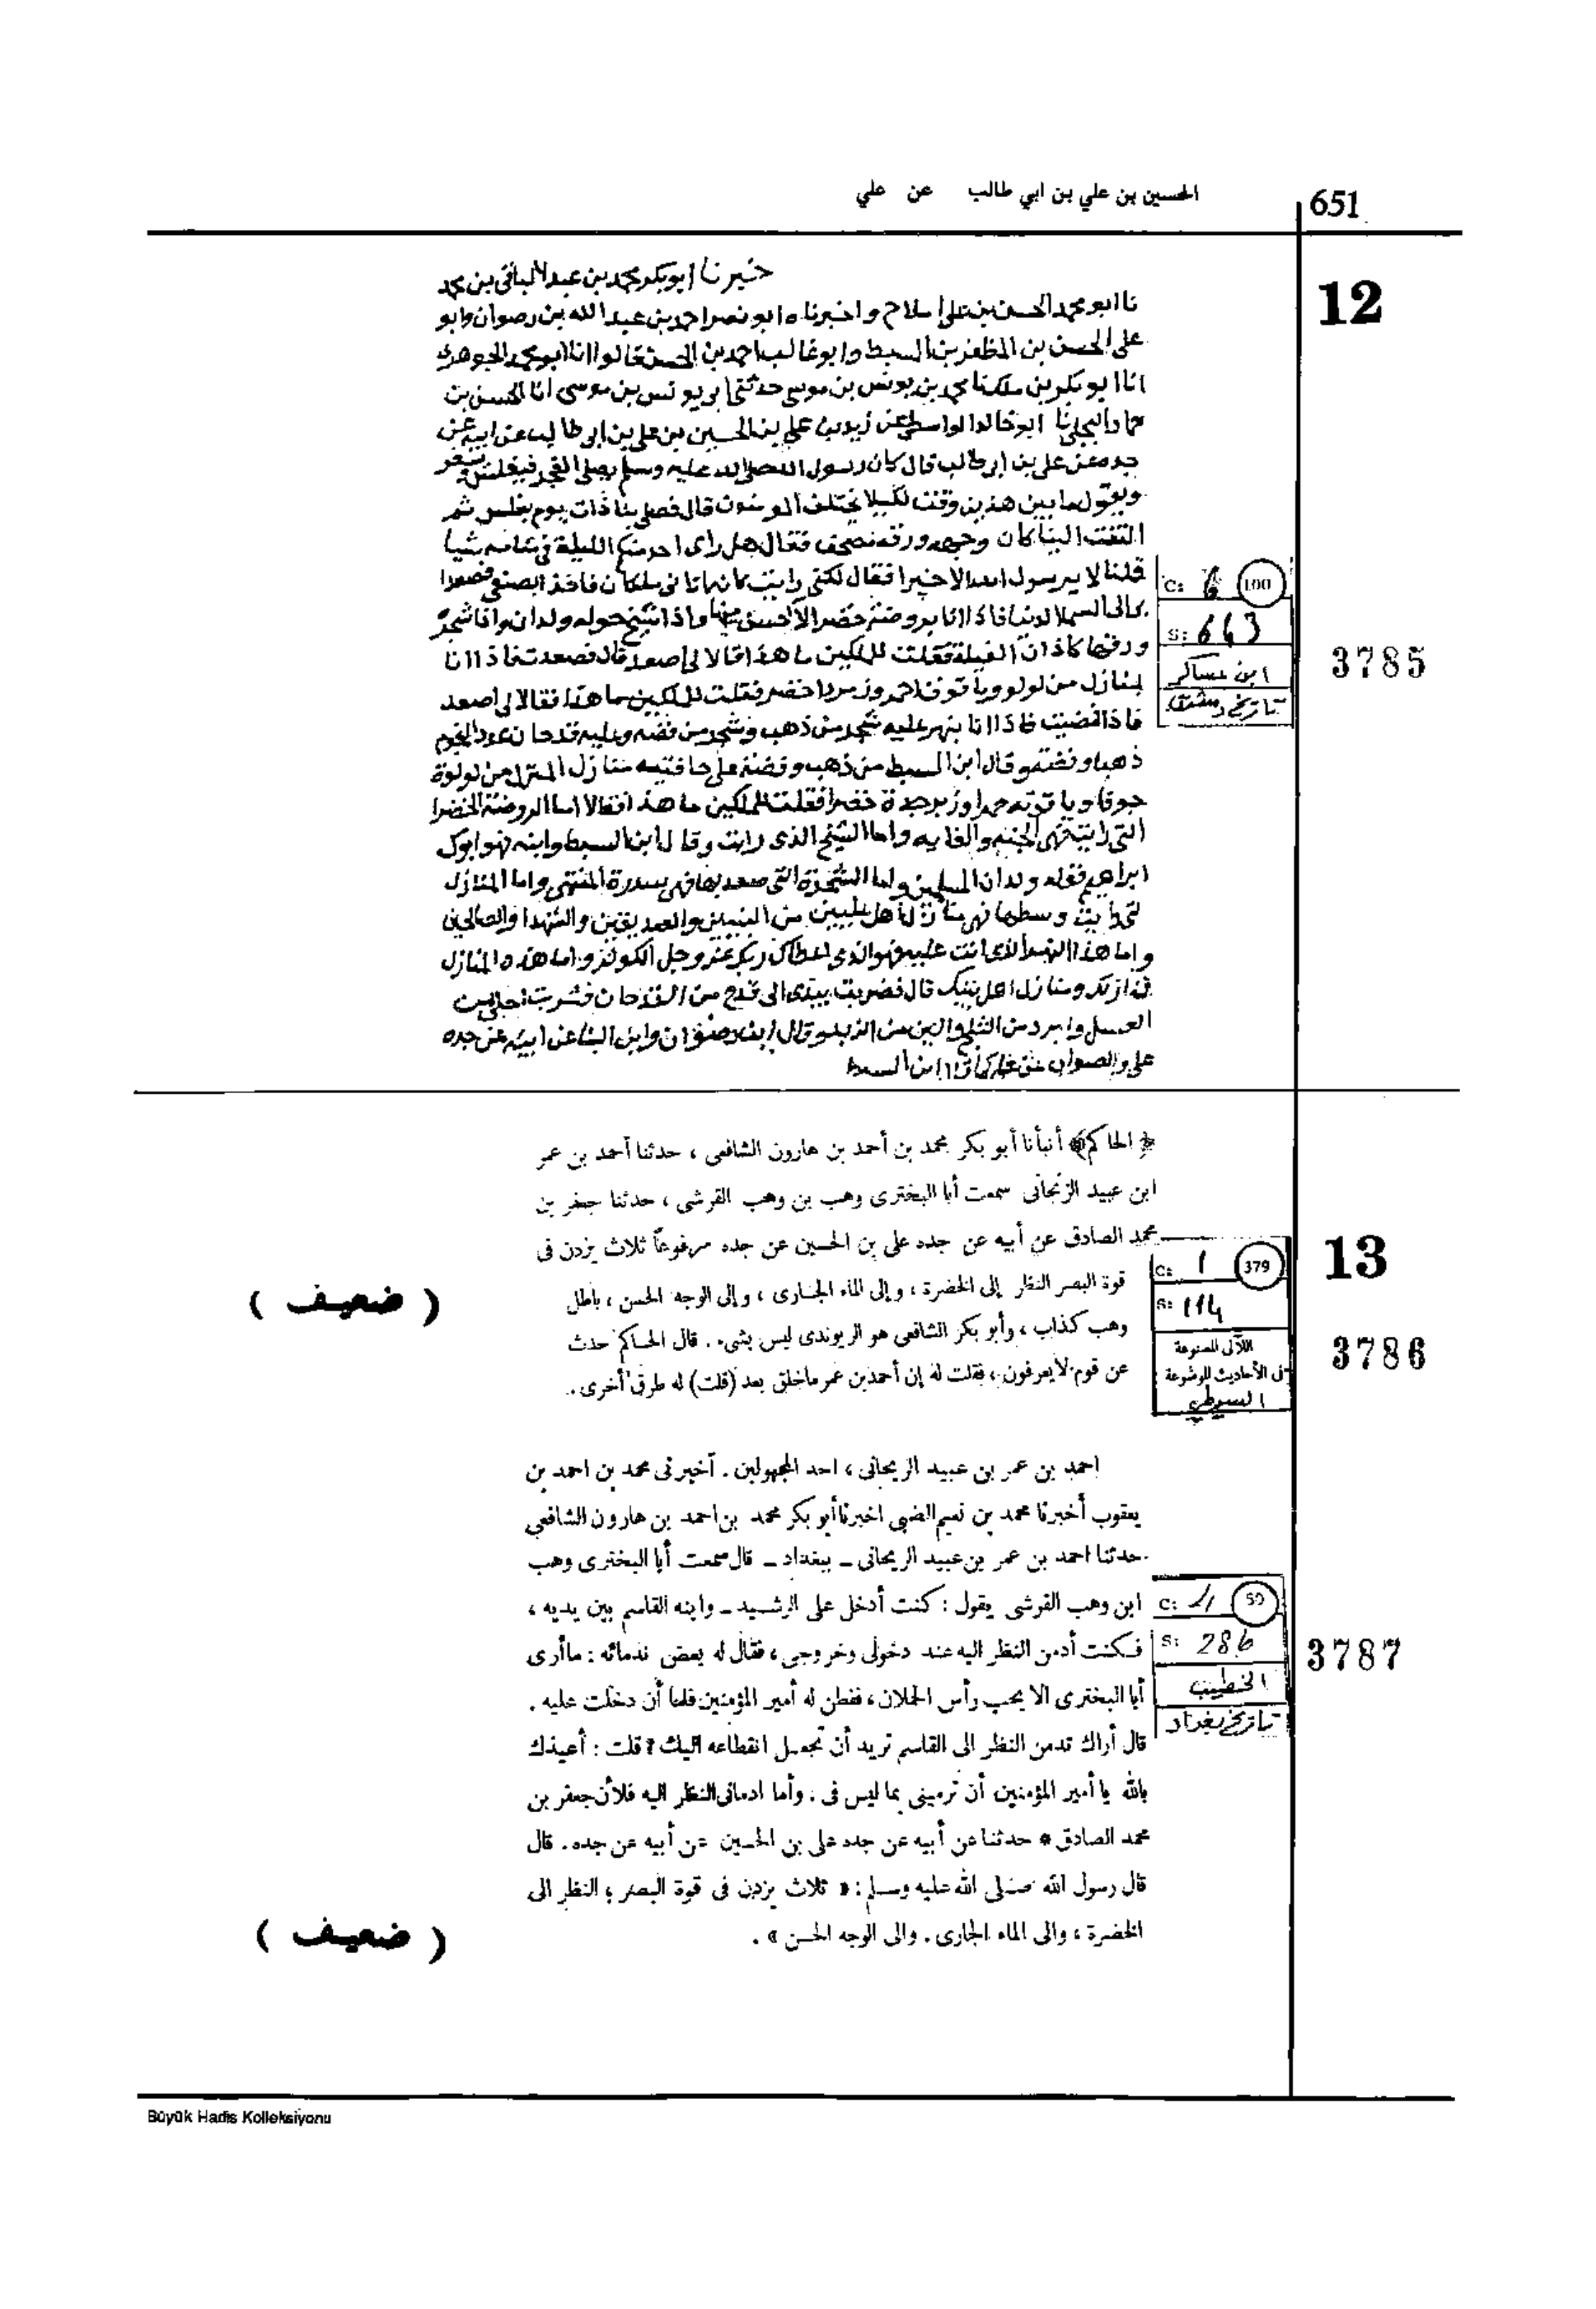 651
الحسين بن علي بن ابي طالب عن علي
12
ابوبكر محمد بن عبد الباقي بن محمد
نا ابو محمد الحسن بن علي إملاح واخبرناه ابو نصر احمد بن عبد الله بن رضوان وابو
على الحسن بن المظفر بن السبط وابو غالب احمد بن الحسن قالوا انا ابو محمد الجوهري
محمد بن يونس بن موسى حدثني ابي يونس بن موسى انا الحسن بن
حماد البجلي نا ابو خالد الواسطي عن زيد بن علي بن الحسين بن علي بن ابي طالب عن ابيه عن
جده عن علي بن ابي طالب قال كان رسول الله صلى الله عليه وسلم يصلي الفجر فيغلس ويسفر
ويقول ما بين هذين وقت لكيلا يختلف المومنون قال فصلى بنا ذات يوم بغلس ثم
التفت الينا كان وجهه ورقة مصحف فقال هل راى احد منكم الليلة في منامه شيا
قلنا لا يرسول الله
فقلت للملكين ما هذا قالا لي اصعد قال فصعدت فاذا انا
بمنازل من لولو وياقوت احمر وزمردا خضر فقلت للملكين ما هذا فقالا لي اصعد
فاذا انا بنهر عليه شجر من ذهب وشجر من فضة وعليه قدحان عدد النجوم
ابن السبط من ذهب وفضة على حافتيه منازل المنزل من لولوة
فقلت للملكين ما هذا فقالا اما الروضة الخضرا
التي رايت فهي الجنه واما الشيخ الذي رايت وقال ابن السبط وابنه فهو ابوك
ابراهيم ولدان المسلمين واما الشجرة التي صعد بها فهي سدرة المنتهى واما المنازل
من النبيين والصديقين والشهدا والصالحين
واما هذا النهر الذي انت عليه فهو الذي اعطاك ربك عز وجل الكوثر واما هذه المنازل
ومنازل اهل بيتك قال فضربت بيدي الى قدح من القدحان فشربت احلى من
العسل وابرد من الثلج والين من الزبد وقال ابن رضوان وابن البنا عن ابيه عن جده
على والصواب ابن السبط
C: 6 100
S: 643
ابن عساكر
تاريخ دمشق
3785
﴿الحاكم﴾ أنبأنا أبو بكر محمد بن أحمد بن هارون الشافعى ، حدثنا أحمد بن عمر
ابن عبيد الزنجانى سمعت أبا البخترى وهب بن وهب القرشى ، حدثنا جعفر بن
محمد الصادق عن أبيه عن جده على بن الحسين عن جده مرفوعاً ثلاث يزدن فى
قوة البصر النظر إلى الخضرة ، وإلى الماء الجارى ، وإلى الوجه الحسن ، باطل
وهب كذاب ، وأبو بكر الشافعى هو الريوندى ليس بشىء . قال الحاكم حدث
عن قوم لا يعرفون ، فقلت له إن أحمد بن عمر ما خلق بعد (قلت) له طرق أخرى .
13
C: 1 379
S: 114
اللآلى المصنوعة
فى الأحاديث الموضوعة
السيوطي
3786
( ضعيف )
احمد بن عمر بن عبيد الريحانى ، احد المجهولين . أخبرنى محمد بن احمد بن
يعقوب أخبرنا محمد بن نعيم الضبى اخبرنا أبو بكر محمد بن احمد بن هارون الشافعي
حدثنا احمد بن عمر بن عبيد الريحانى - ببغداد - قال سمعت أبا البخترى وهب
ابن وهب القرشى يقول : كنت أدخل على الرشيد - وابنه القاسم بين يديه ،
فكنت أدمن النظر اليه عند دخولى وخروجى ، فقال له بعض ندمائه : ماأرى
أبا البخترى الا يحب رأس الحملان ، ففطن له أمير المؤمنين فلما أن دخلت عليه .
قال أراك تدمن النظر الى القاسم تريد أن تجعل انقطاعه اليك ؟ قلت : أعيذك
بالله يا أمير المؤمنين أن ترمينى بما ليس فى ، وأما ادمانى النظر اليه فلأن جعفر بن
محمد الصادق * حدثنا عن أبيه عن جده على بن الحسين عن أبيه عن جده . قال
قال رسول الله صلى الله عليه وسلم : « ثلاث يزدن فى قوة البصر ؛ النظر الى
الخضرة ، والى الماء الجارى . والى الوجه الحسن » .
C: 4 59
S: 286
الخطيب
تاريخ بغداد
3787
( ضعيف )
Büyük Hadis Kolleksiyonu